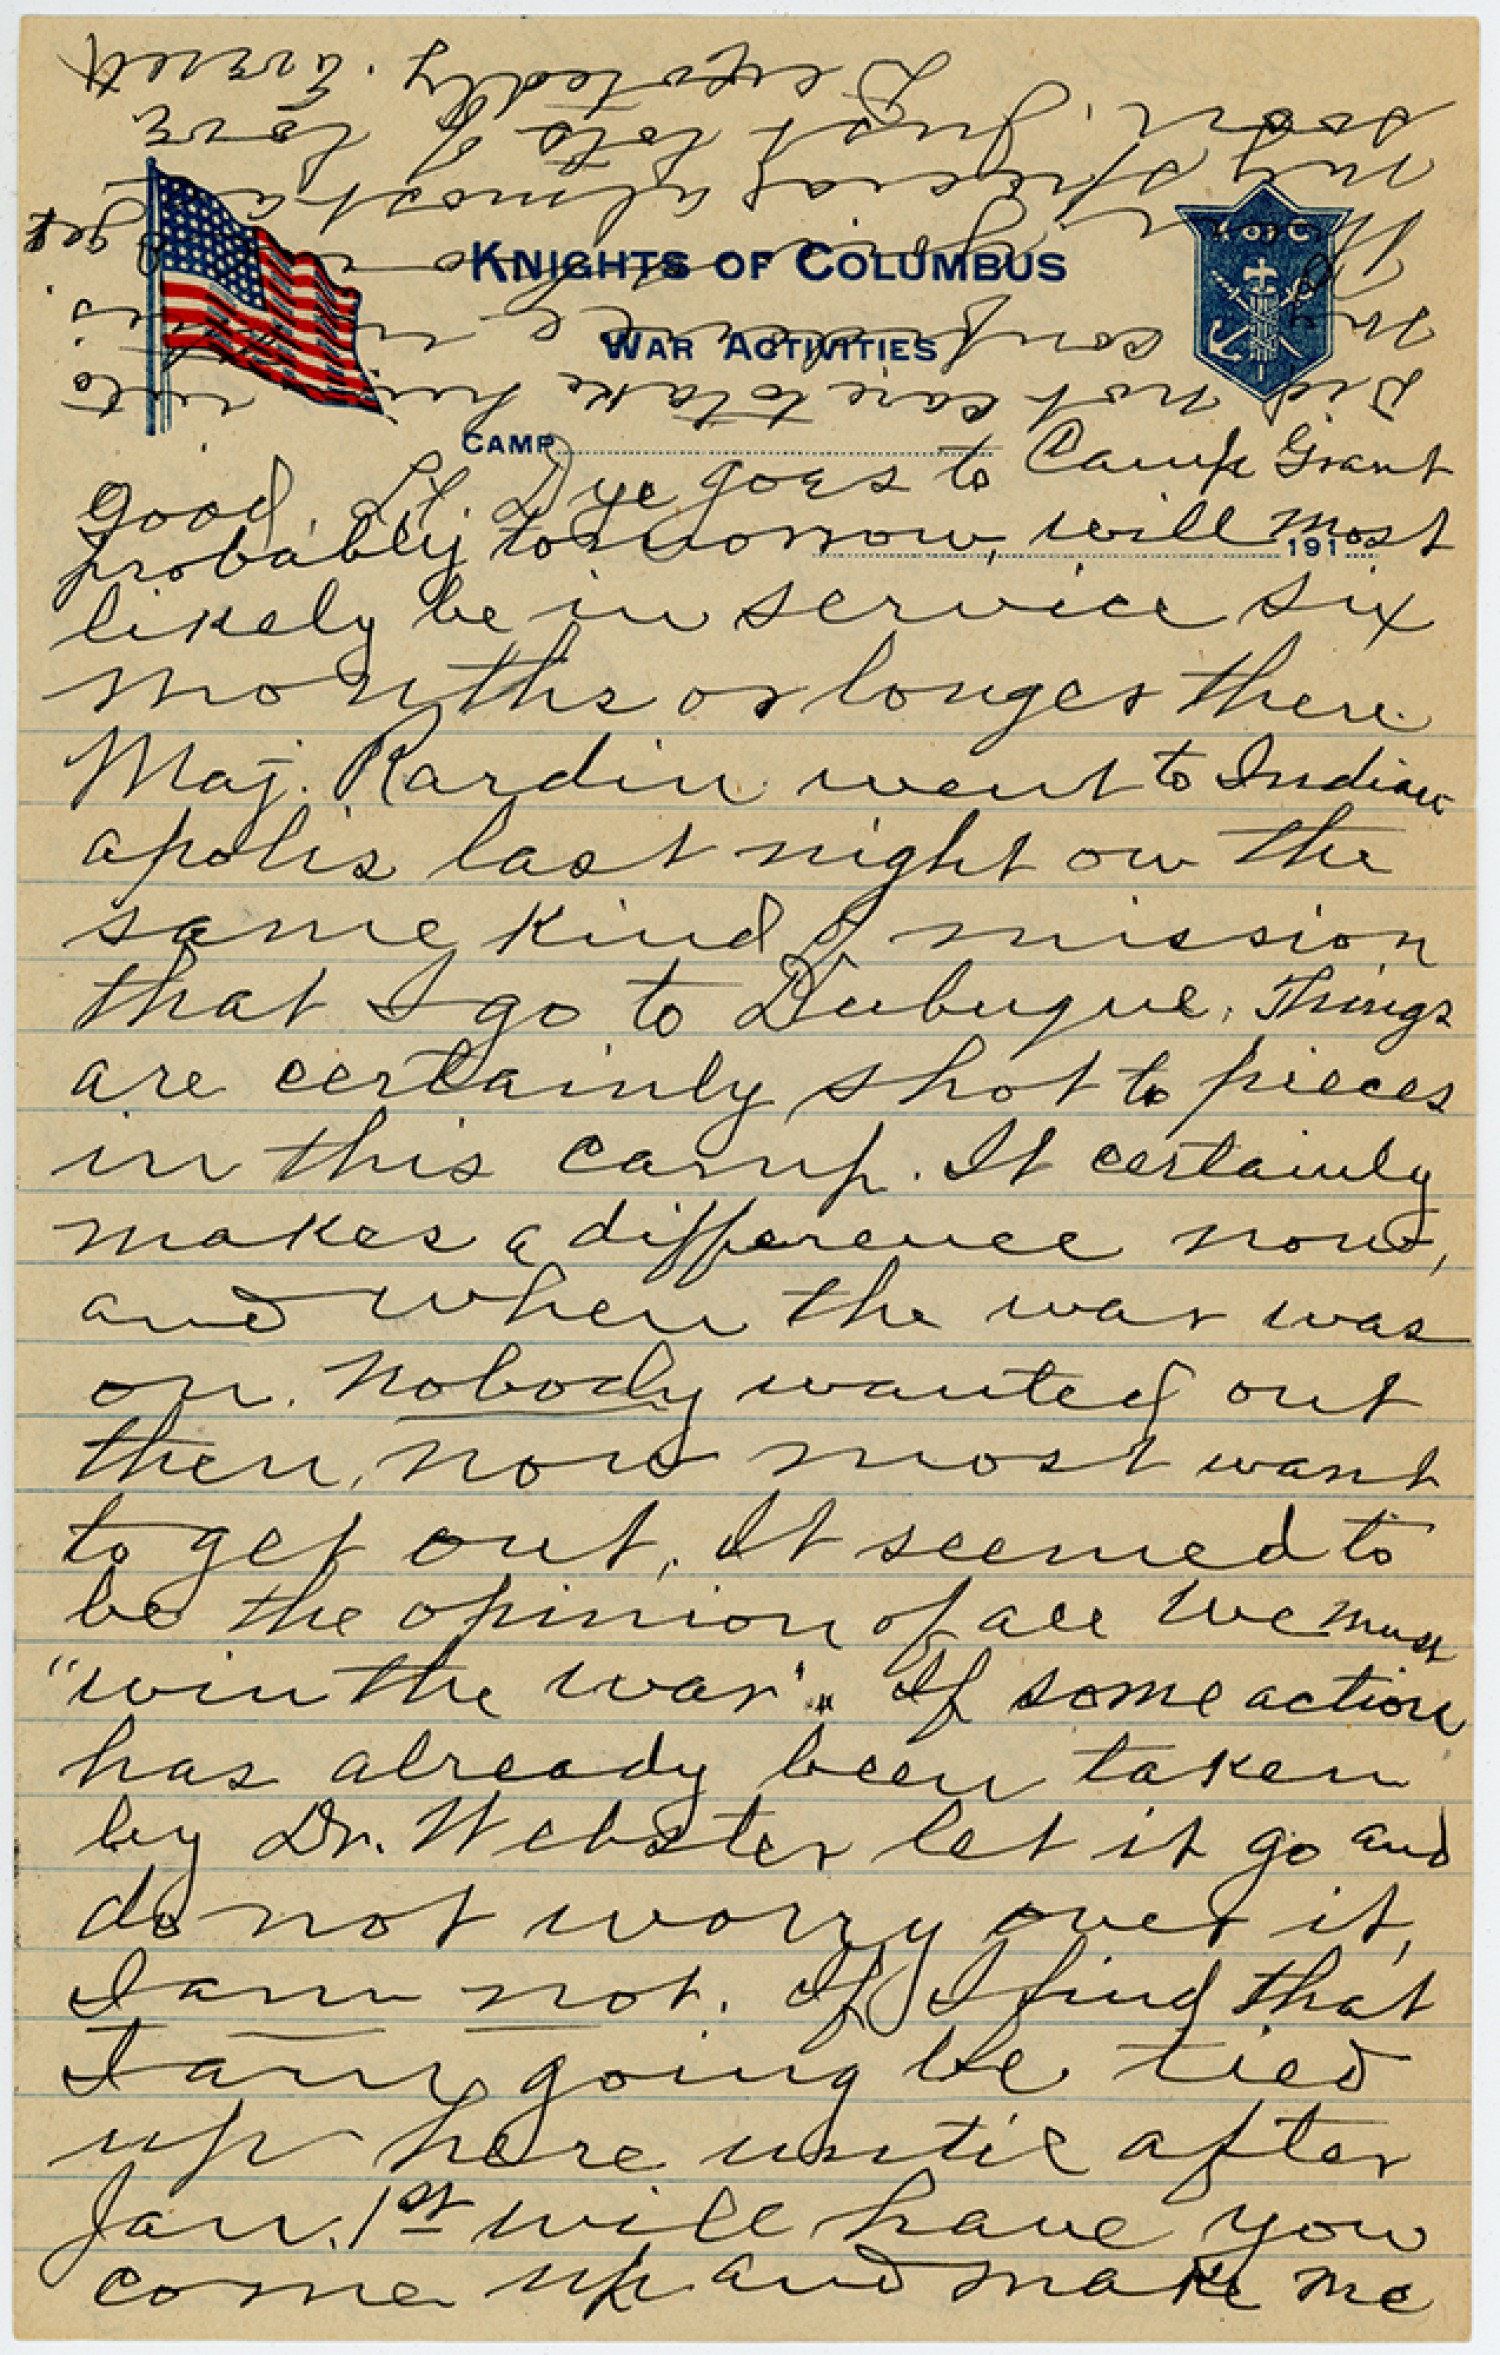 KNIGHTS OF COLUMBUS
WAR ACTIVITIES
K OF C
CAMP
191
good. Lt. Dye goes to Camp Grant
probably tomorrow, will most
likely be in service six
months or longer there
Maj. Rardin went to Indian
apolis last night on the
same kind of mission
that I go to Dubuque. Things
are certainly shot to pieces
in this camp. It certainly
makes a difference now,
and when the war was
on. Nobody wanted out
then, now most want
to get out. It seemed to
be the opinion of all We must
"win the war". If some action
has already been taken
by Dr. Webster let it go and
do not worry over it,
I am not. If I find that
I am going be tied
up here until after
Jan. 1st will have you
come up and make me
did not care to take him into
my confidence in this.
get
my special almost as
soon. Just lots of love
Devotedly. Everett